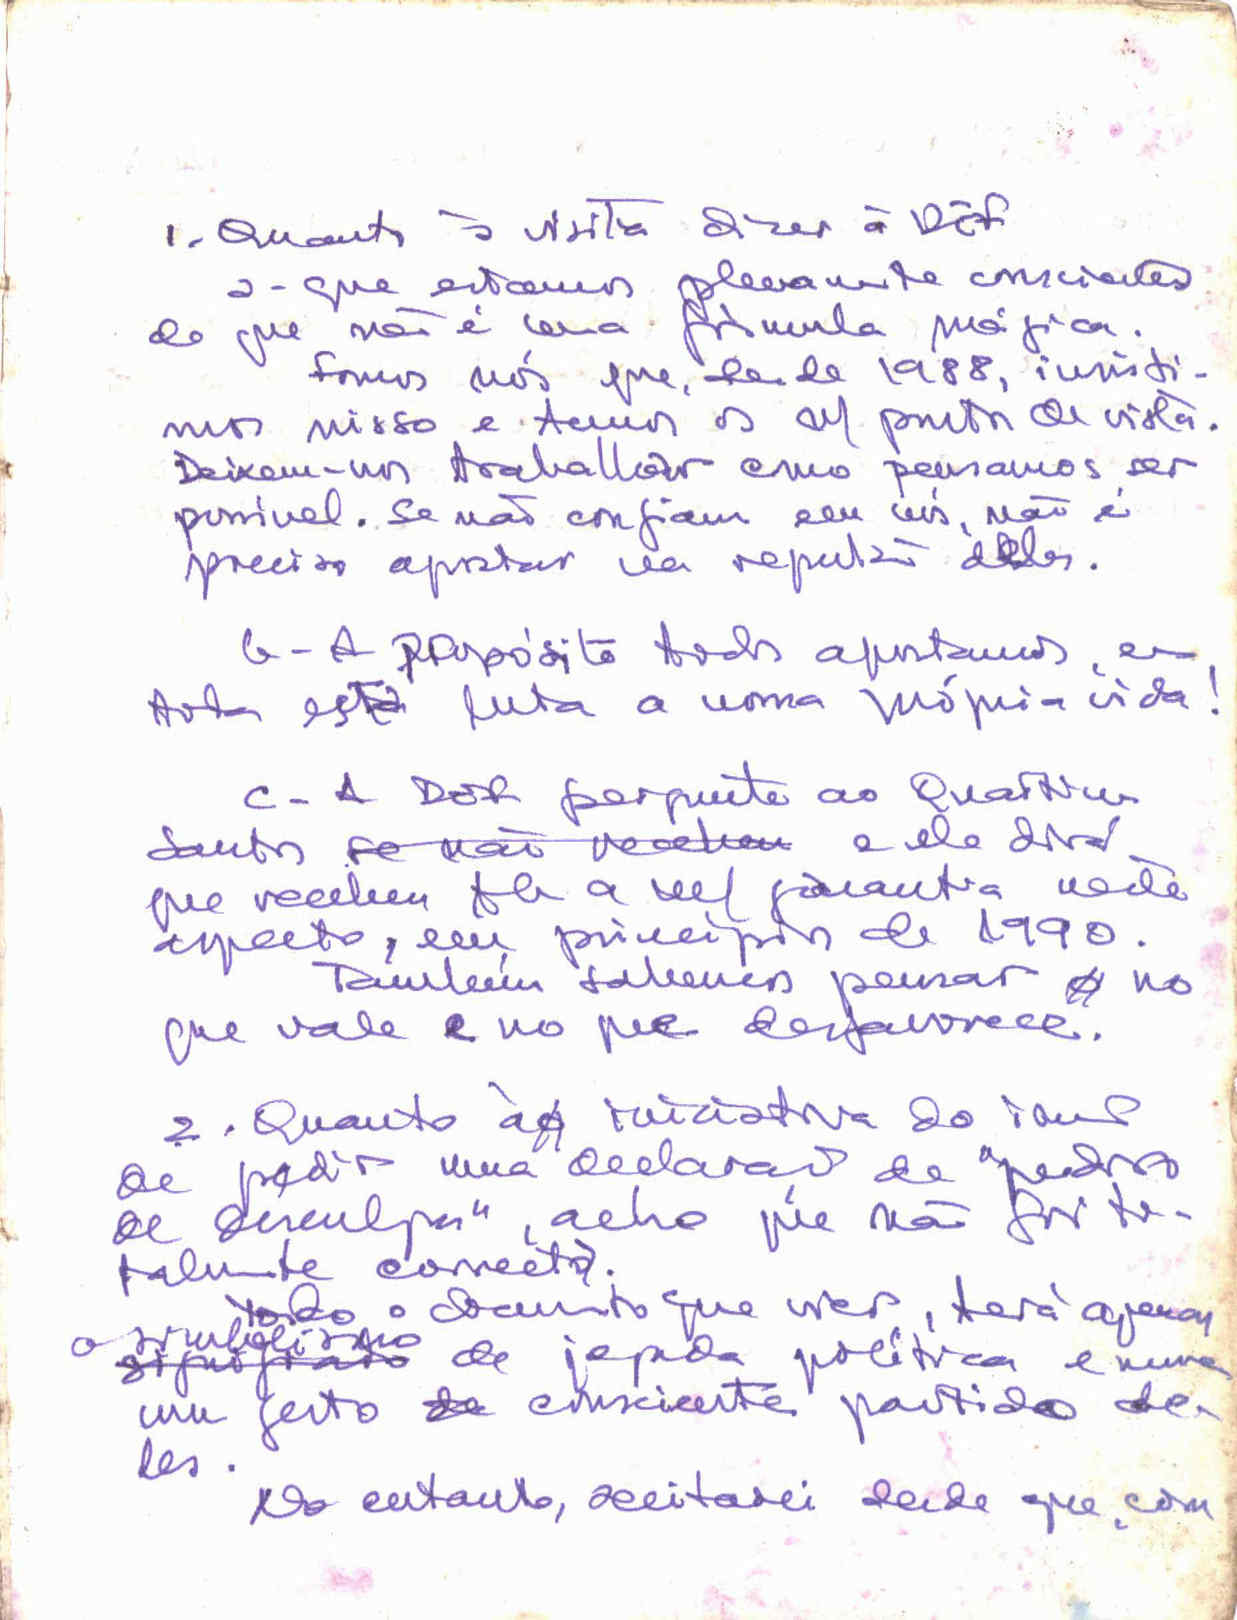 1. Quanto à visita dizer à DCR
a - que estamos plenamente conscientes
de que não é uma fórmula mágica.
Somos nós que, desde 1988, insisti-
mos nisso e temos os n/ pontos de vista.
Deixem-nos trabalhar como pensamos ser
possível. Se não confiam em nós, não é
preciso apostar na reputação deles.
b - A propósito todos apostamos, em
toda esta luta a nossa própria vida!
c - A pergunte ao
Santos se não recebeu e ele dirá
que recebeu a garantia neste
aspecto, em princípios de 1990.
Também sabemos pensar no
que vale e no que desfavorece.
2. Quanto à iniciativa do
de pedir uma declaração de "pedido
de desculpas", acho que não foi to-
talmente correcto.
Todo o documento que vier, terá apenas
o simbolismo
significado de jogada política e nunca
um gesto de consciente partido de-
les.
No entanto, aceitarei desde que, com